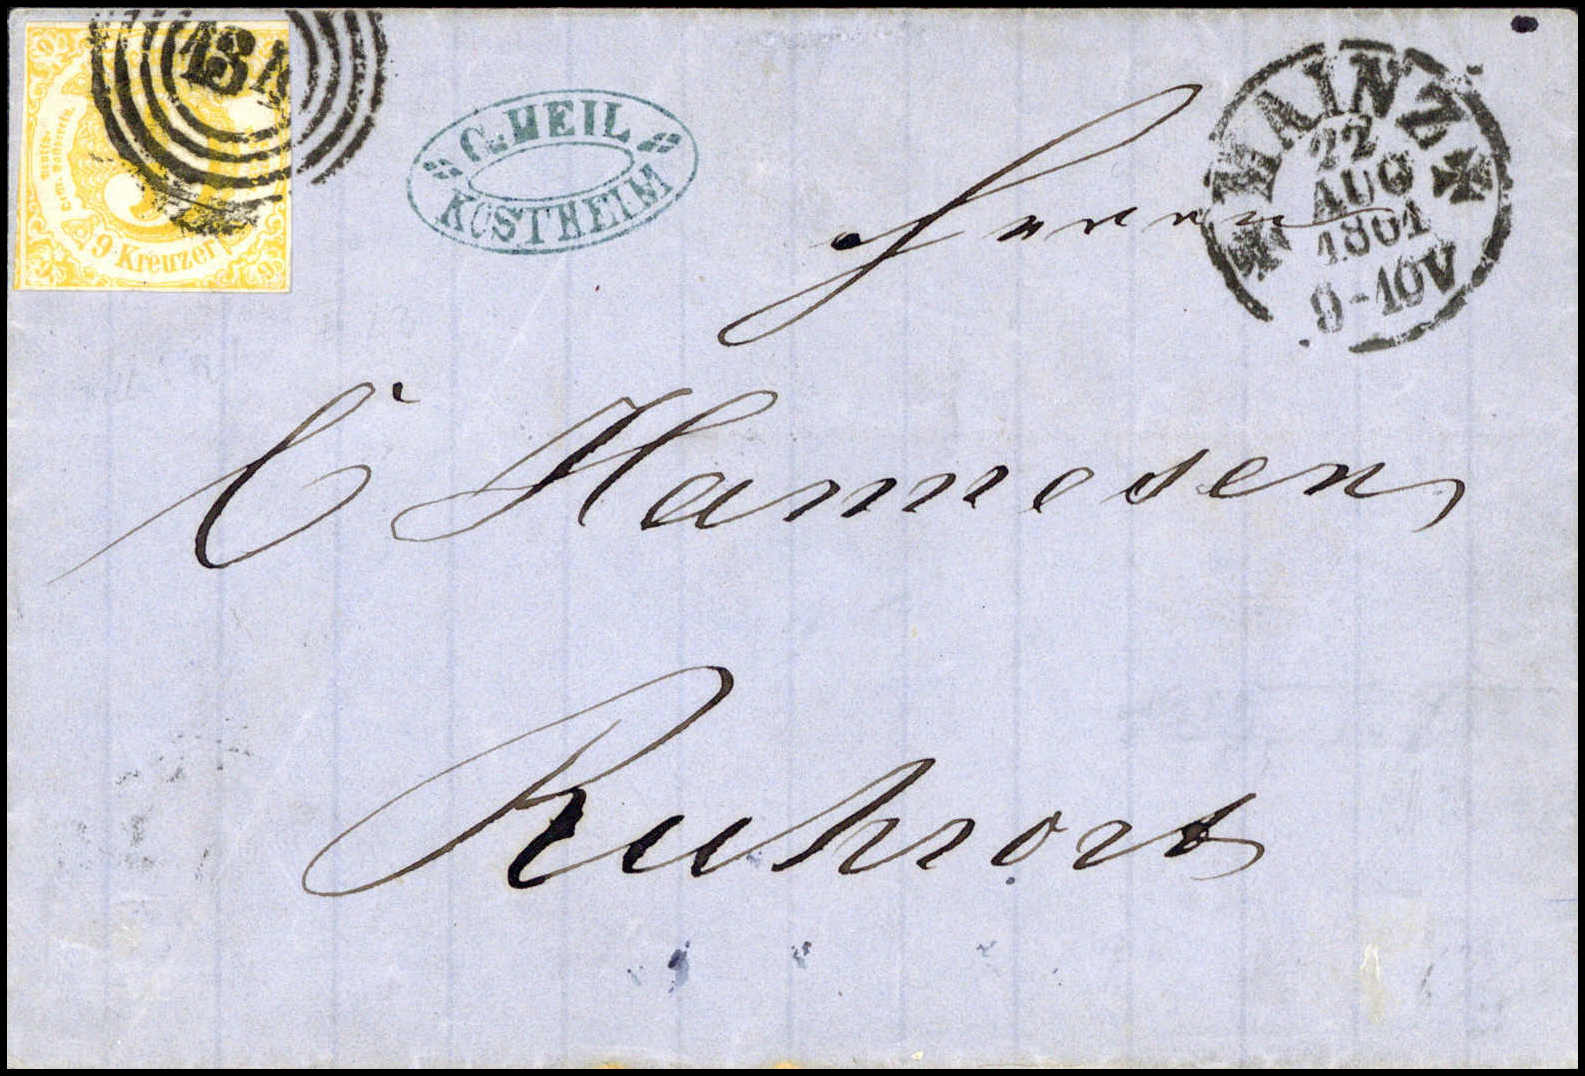 134
9 Kreuzer
G. HEIL
KOSTHEIM
MAINZ
22
AUG
1861
9-10V
Herrn
C Hannesen
Ruhrort